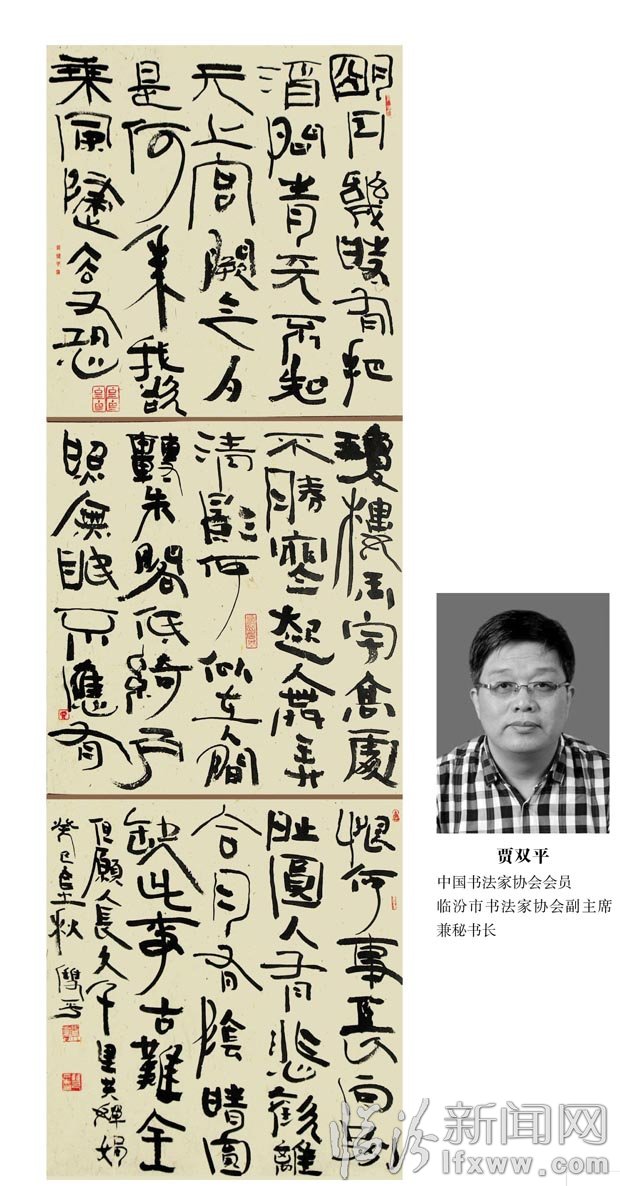 明月幾時有把
酒問青天不知
天上宮闕今夕
是何年我欲
乘風歸去又恐
瓊樓玉宇高處
不勝寒起舞弄
清影何似在人間
轉朱閣低綺戶
照無眠不應有
恨何事長向別
時圓人有悲歡離
合月有陰晴圓
缺此事古難全
但願人長久千里共嬋娟
癸巳秋 雙平
贾双平
中国书法家协会会员
临汾市书法家协会副主席
兼秘书长
临汾新闻网
lfxww.com